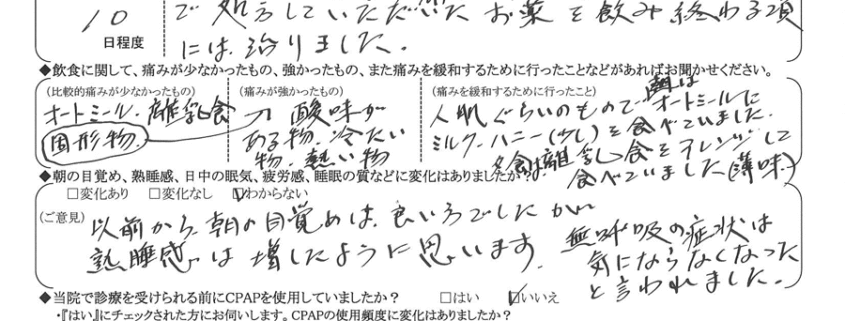 で処方していただいたお薬を飲み終わる頃
10
日程度
には、治りました。
◆飲食に関して、痛みが少なかったもの、強かったもの、また痛みを緩和するために行ったことなどがあればお聞かせください。
(比較的痛みが少なかったもの)
オートミール、離乳食
固形物、
(痛みが強かったもの)
酸味が
ある物、冷たい
物、熱い物
(痛みを緩和するために行ったこと)
人肌ぐらいのもので朝は
オートミールに
ミルク、ハニー(少し)を食べていました。
夕食は離乳食をアレンジして
食べていました(薄味)
◆朝の目覚め、熟睡感、日中の眠気、疲労感、睡眠の質などに変化はありましたか?
□変化あり □変化なし ☑わからない
(ご意見)
以前から、朝の目覚めは、良いろでしたが
熟睡感は増したように思います。
無呼吸の症状は
気にならなくなった
と言われました。
◆当院で診療を受けられる前にCPAPを使用していましたか? □はい ☑いいえ
・『はい』にチェックされた方にお伺いします。CPAPの使用頻度に変化はありましたか?